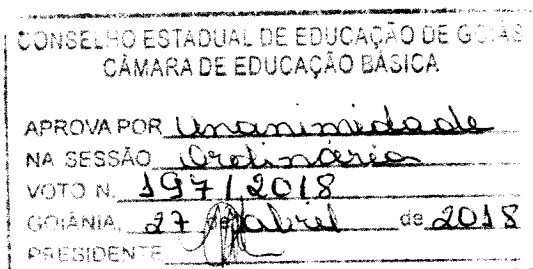 CONSELHO ESTADUAL DE EDUCAÇÃO DE GOIÁS
CÂMARA DE EDUCAÇÃO BÁSICA
APROVA POR Unanimidade
NA SESSÃO Ordinária
VOTO N. 197/2018
GOIÂNIA, 27 de abril de 2018
PRESIDENTE